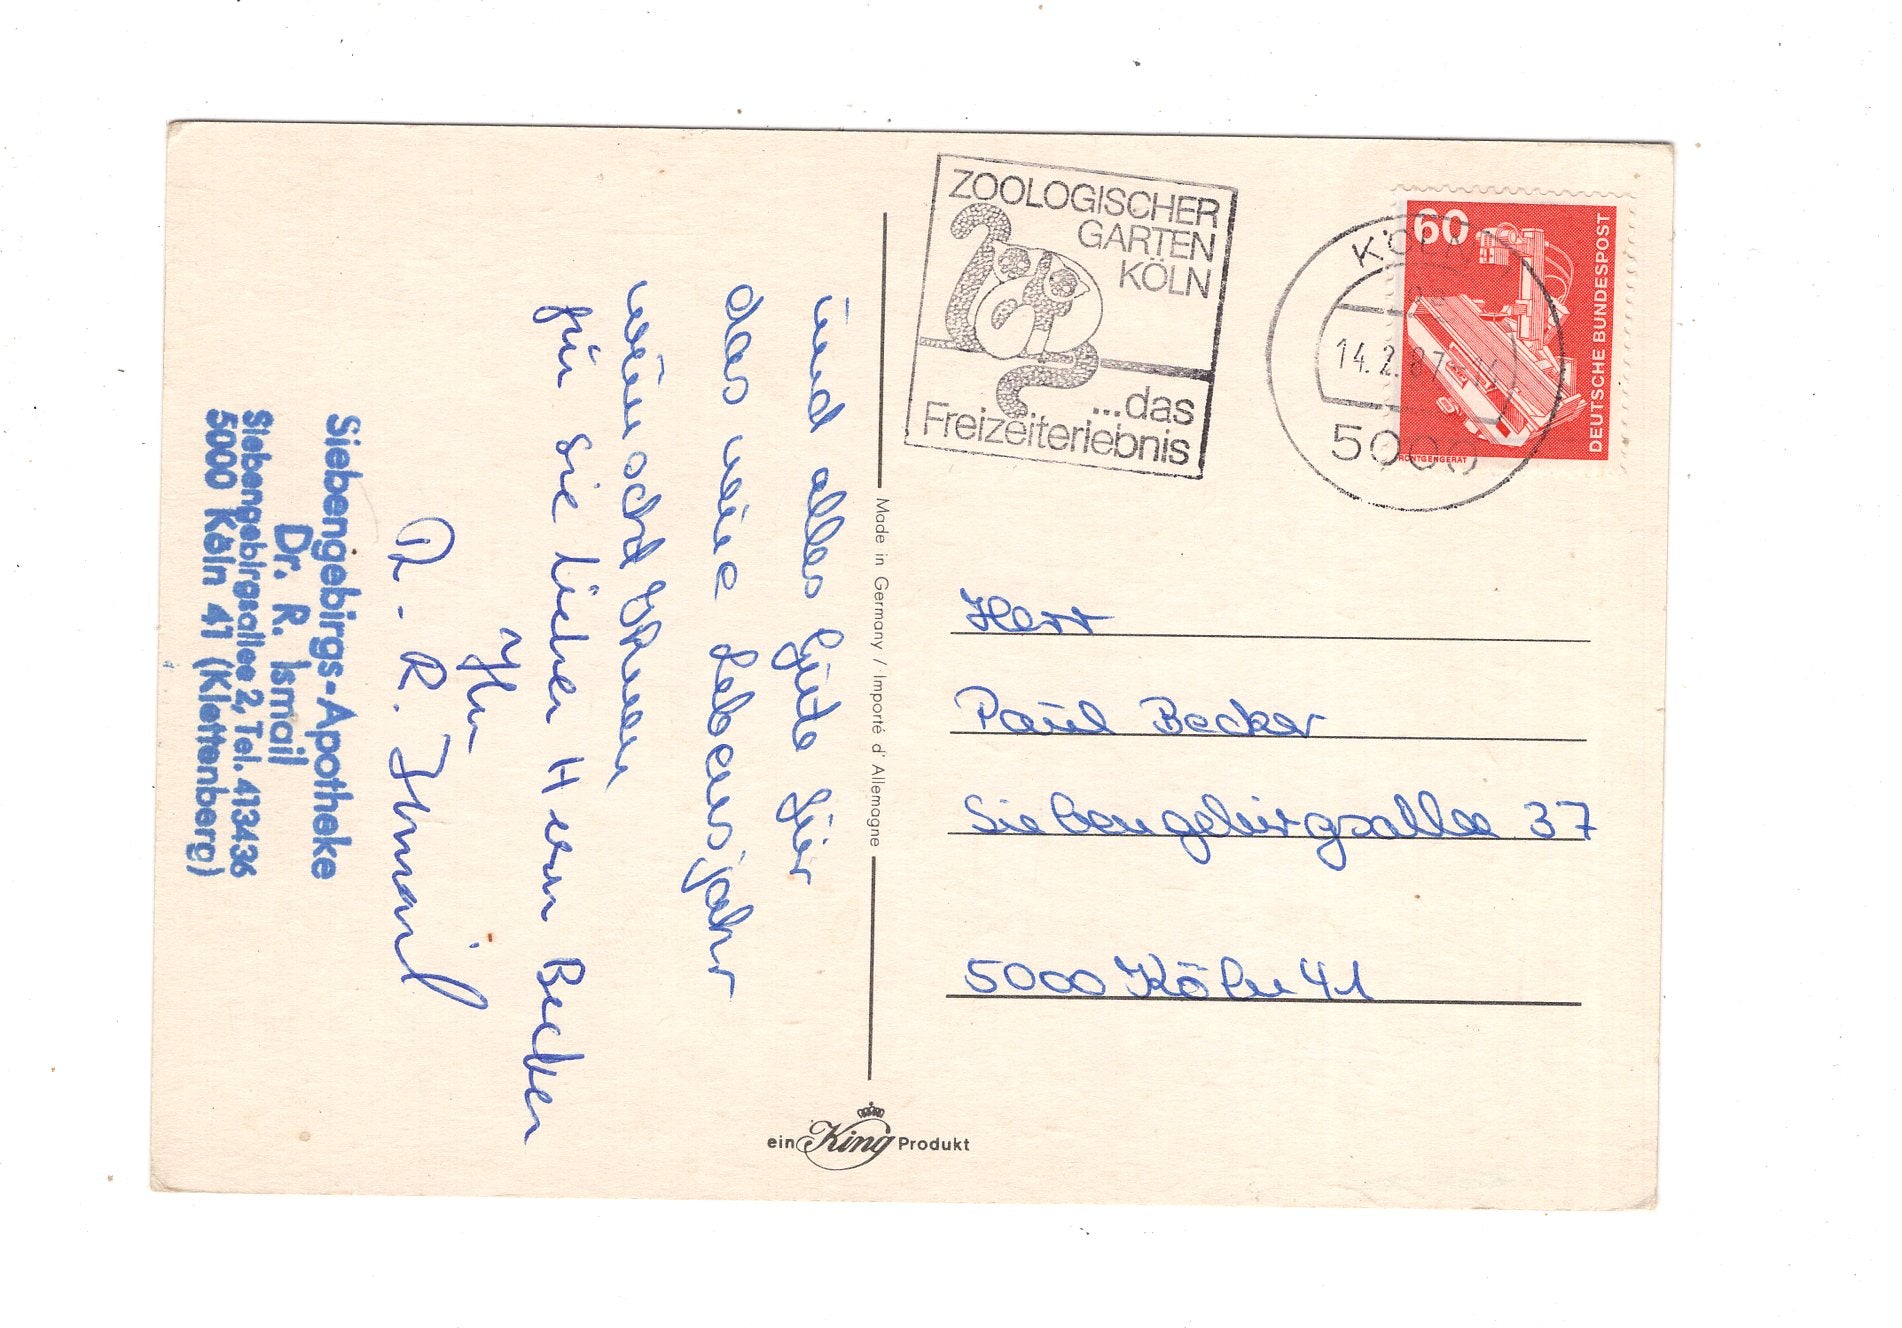 ZOOLOGISCHER
GARTEN
KÖLN
...das
Freizeiterlebnis
KÖLN
14.2.87
5000
60
DEUTSCHE BUNDESPOST
RÖNTGENGERÄT
und alles Gute für
das neue Lebensjahr
wünscht Ihnen
für Sie lieber Herrn Becker
Ihr
R. Ismail
Siebengebirgs-Apotheke
Dr. R. Ismail
Siebengebirgsallee 2, Tel. 413436
5000 Köln 41 (Klettenberg)
Made in Germany / Importé d'Allemagne
Herr
Paul Becker
Siebengebirgsallee 37
5000 Köln 41
ein King Produkt